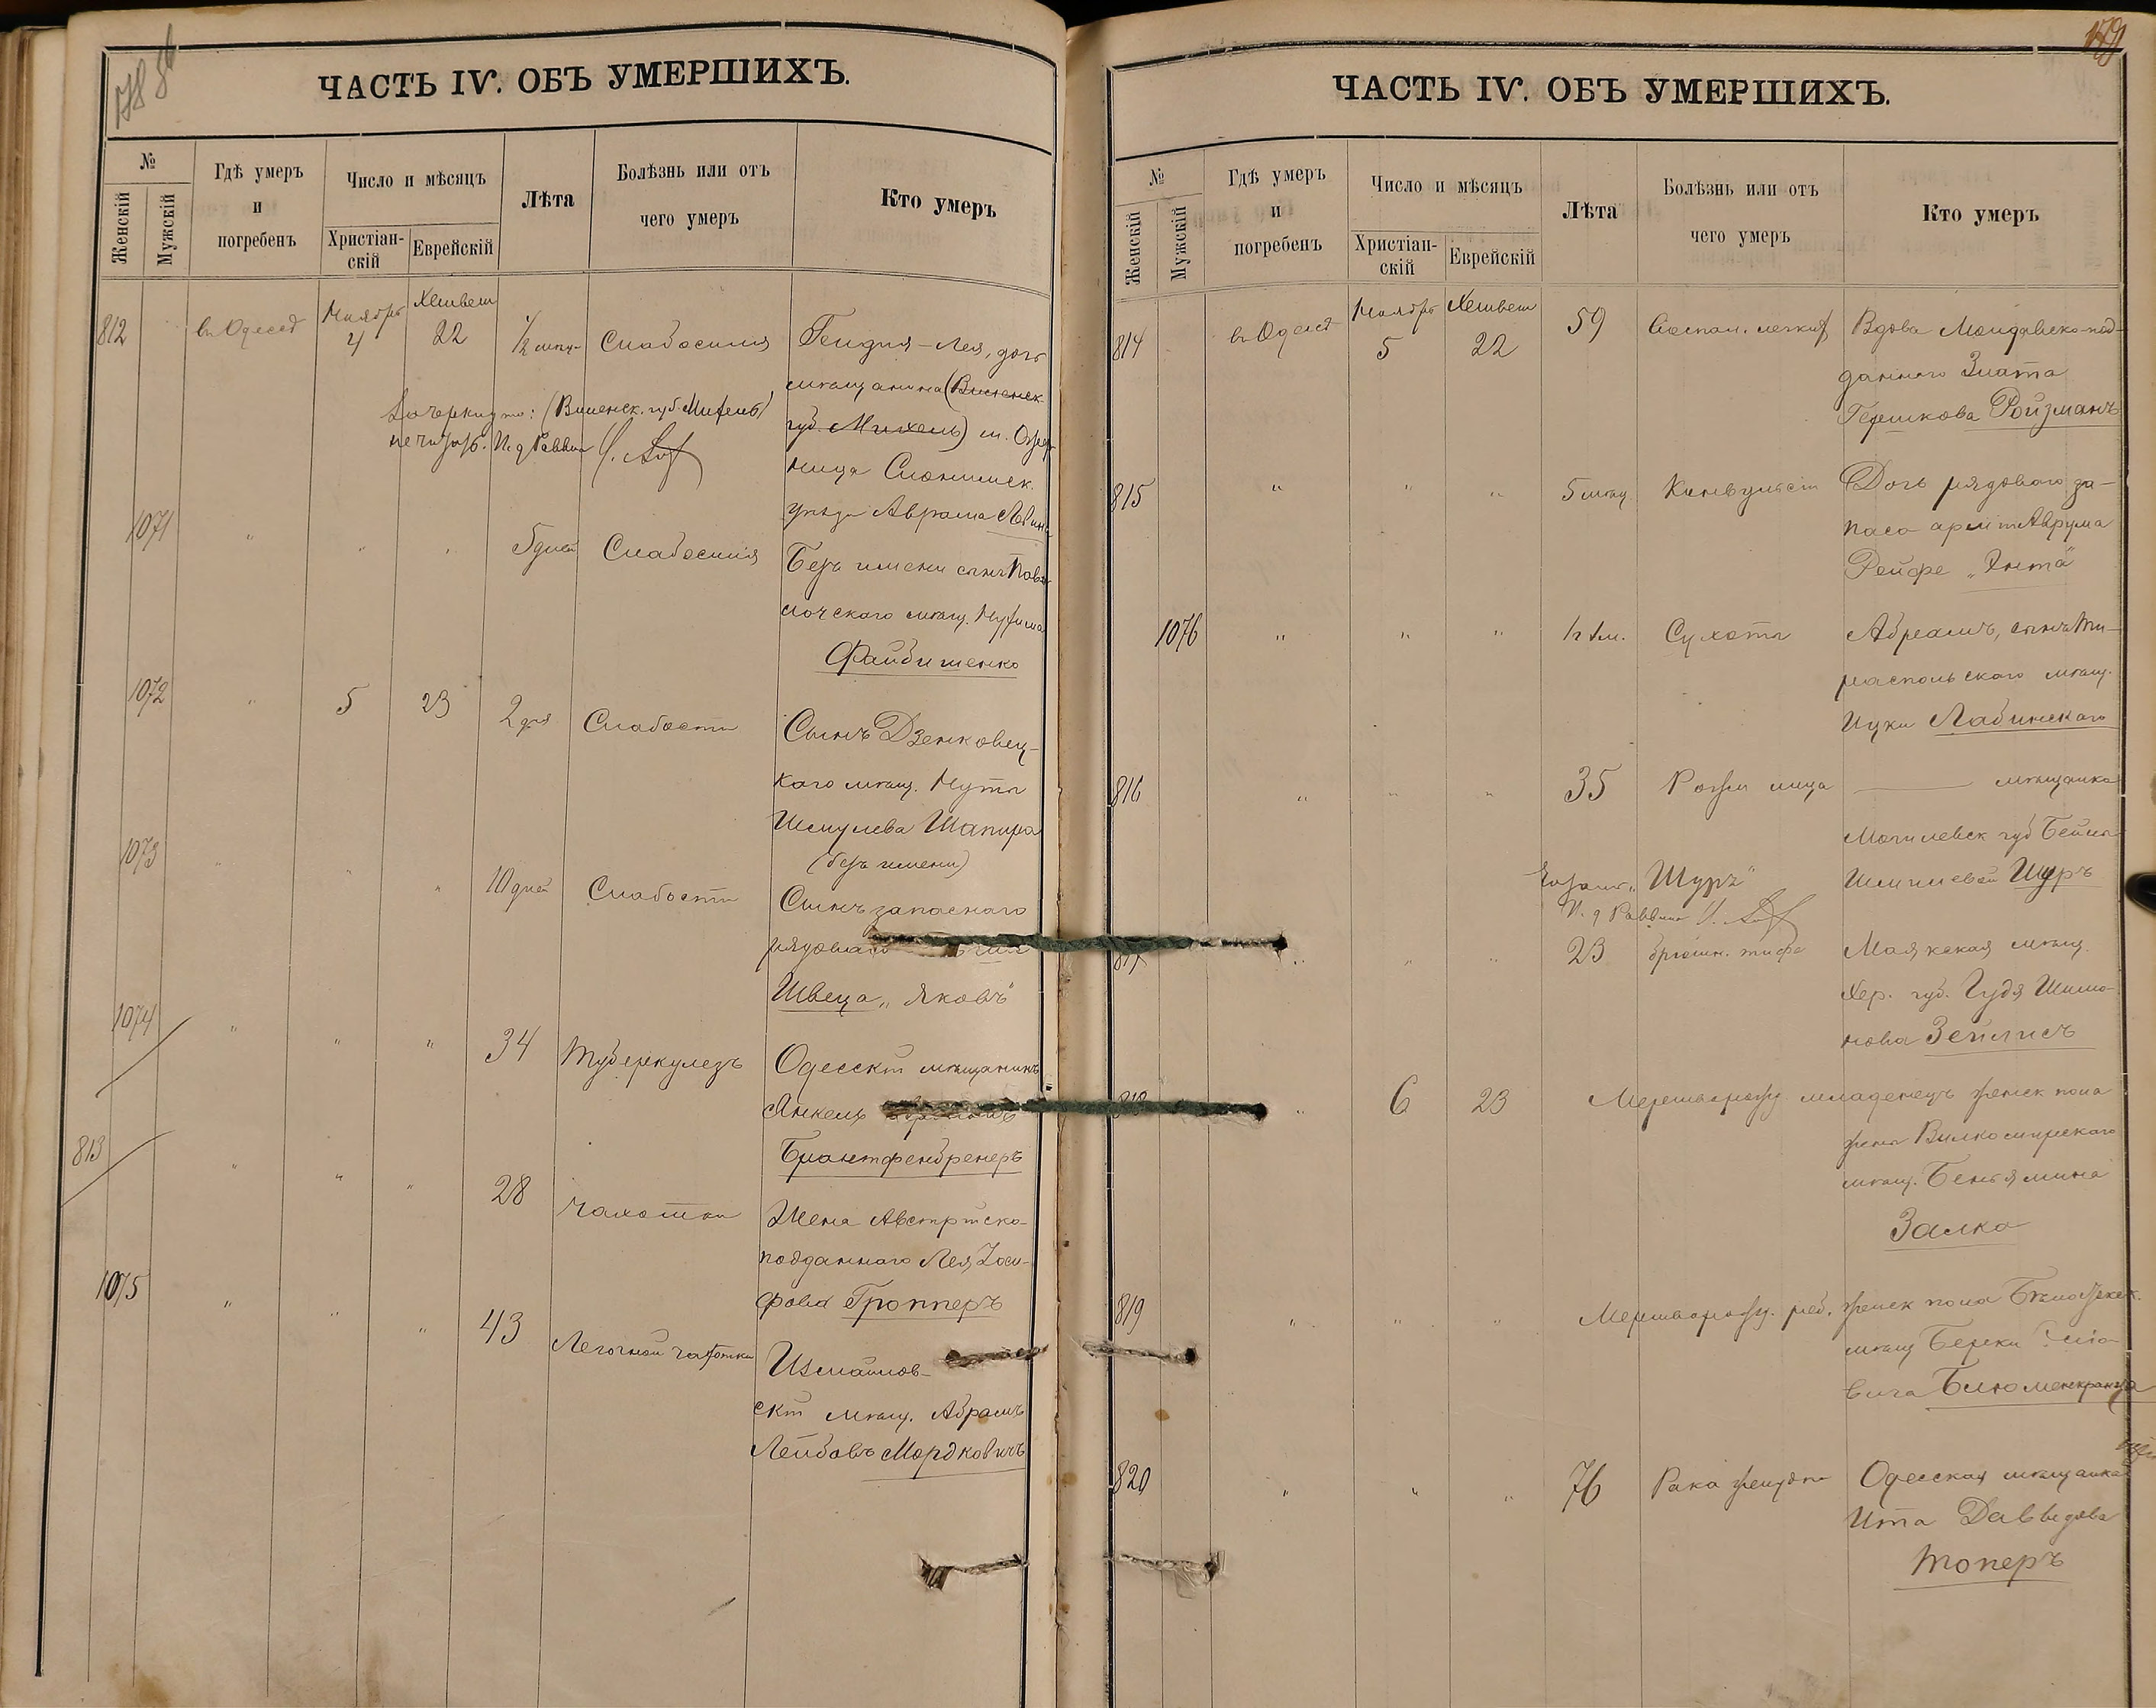 178 об
ЧАСТЬ IV. ОБЪ УМЕРШИХЪ.
№
Женскій
Мужскій
Гдѣ умеръ
и
погребенъ
Число и мѣсяцъ
Христіан-
скій
Еврейскій
Лѣта
Болѣзнь или отъ
чего умеръ
Кто умеръ
812 въ Одессѣ Ноябрь 4 Хешвен 22 1/2 мѣсяц. Слабосилія Гендля-Лея, дочь
мѣщанина (Виленск.
губ. Михель) м. Озер
ница Слонимск.
уѣзда Аврама Левина
Зачеркнуто: (Виленск. губ. Михель)
не читать. И. д. Раввина
1071 " " " 5 дней Слабосилія Безъ имени сынъ Паво
лочскаго мѣщ. Нухима
Файбишенко
1072 " 5 23 2 дня Слабости Сынъ Дзенковец-
каго мѣщ. Нуты
Шмулева Шапира
(безъ имени)
1073 " " " 10 дней Слабости Сынъ запаснаго
рядоваго
Швеца „Яковъ"
1074 " " " 34 Туберкулезъ Одесскій мѣщанинъ
Янкель
Брантфенбренеръ
813 " " " 28 Чахотки Жена Австрійско-
подданнаго Лея Іоси-
фова Гропперъ
1075 " " " 43 Легочной чахотки Измаилов-
скій мѣщ. Абрамъ
Лейбовъ Мордковичъ
179
ЧАСТЬ IV. ОБЪ УМЕРШИХЪ.
№
Женскій
Мужскій
Гдѣ умеръ
и
погребенъ
Число и мѣсяцъ
Христіан-
скій
Еврейскій
Лѣта
Болѣзнь или отъ
чего умеръ
Кто умеръ
814 въ Одессѣ Ноябрь 5 Хешвен 22 59 Воспал. легкихъ Вдова Молдавско-под-
даннаго Злата
Гершкова Ройзманъ
815 " " " 5 мѣсяц. Конвульсіи Дочь рядового за-
паса арміи Аврума
Рейфе „Ента"
1076 " " " 1 г 1 м. Сухоты Абрамъ, сынъ Ти-
распольскаго мѣщ.
Ицки Лабинскаго
816 " " " 35 Рожи лица мѣщанка
Могилевск губ Бейла
Шлиомовой Шуръ
„Шуръ"
И. д. Раввина
817 " " " 23 брюшн. тифа Маякская мѣщ.
Хер. губ. Гудя Шимо-
нова Зейлисъ
818 " 6 23 Мертворожд младенецъ женск пола
жены Вилкомирскаго
мѣщ. Беньямина
Залко
819 " " " Мертворожд. реб. женск пола
мѣщ Берки
вича Блюменкранца
820 " " " 76 Рака желудка Одесская мѣщанка
Ита Давыдова
Топеръ